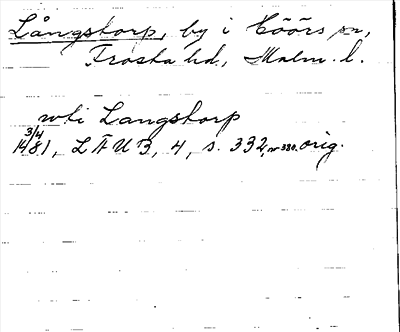 Långstorp, by i Höörs sn,
Frosta hd, Malm. l.
uti Langstorp
3/4 1481, LÄUB, 4, s. 332, nr 380. orig.